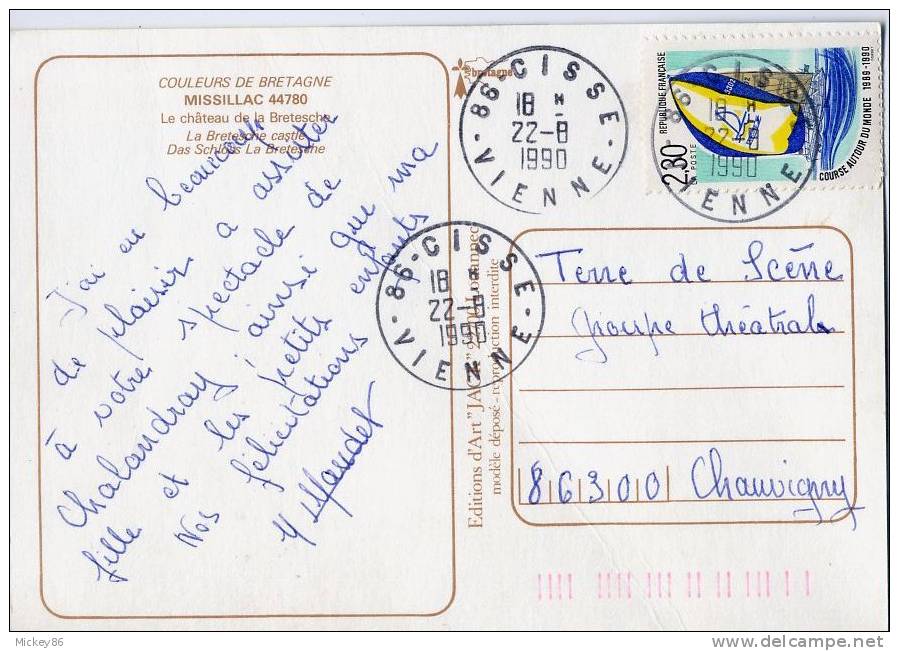 COULEURS DE BRETAGNE
MISSILLAC 44780
Le château de la Bretesche
La Bretesche castle
Das Schloss La Bretesche
J'ai eu beaucoup
de plaisir à assister
à votre spectacle de
Chalandray, ainsi que ma
fille et les petits enfants
Nos félicitations
bretagne
86 - CISSE
18 H
22-8
1990
VIENNE
86 - CISSE
18 H
22-8
1990
VIENNE
Editions d'Art "JACK"
modèle déposé - reproduction interdite
RÉPUBLIQUE FRANÇAISE
2,30
LA POSTE
COURSE AUTOUR DU MONDE 1989-1990
86
18 H
22-8
1990
VIENNE
Terre de Scène
groupe théatral
86300 Chauvigny
Mickey86
www.delcampe.net